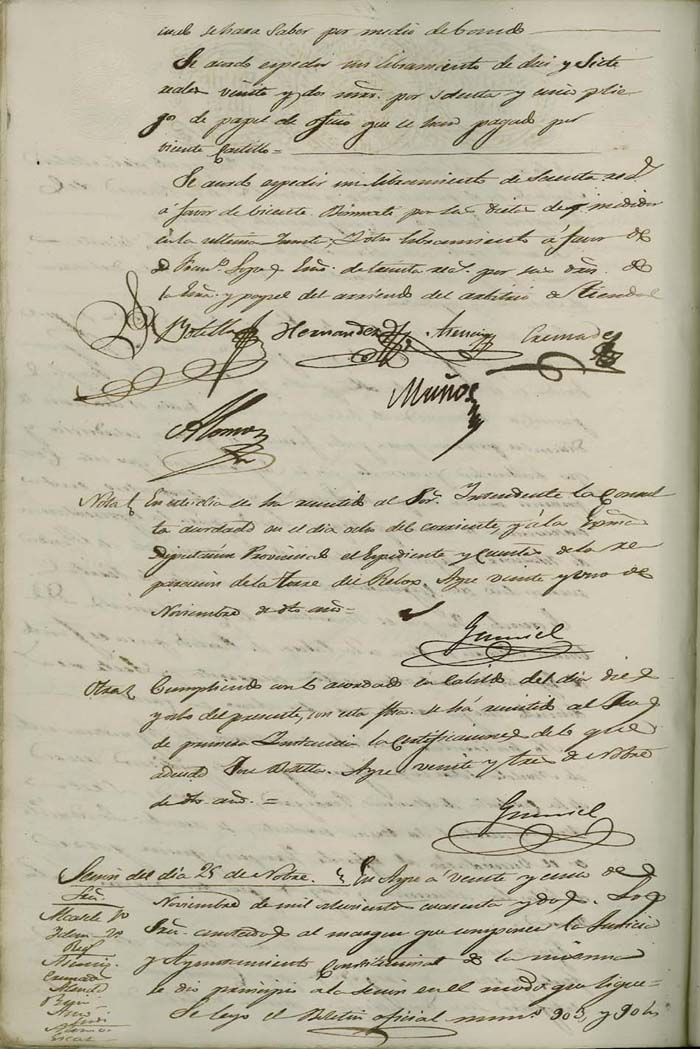 cual se hara saber por medio de bando
Se acordo expedir un libramiento de diez y siete
reales veinte y dos mrs. por setenta y cinco plie-
gos de papel de oficio que se han pagado por
Vicente Castillo=
Se acordo expedir un libramiento de sesenta rs.
á favor de Vicente por la dieta de medidor
en la ultima Junta, y otro libramiento á favor de
D. Franco. de treinta rs. por sus dros. de
la y papel del arriendo del arbitrio de
Botella Hernandez Asencio Cremades
Muños
Alonso
Nota En este dia se ha remitido al Sor. Intendente la Consul
ta acordada en el dia ocho del corriente, y á la Exma.
Diputacion Provincial el Expediente y Cuenta de la re
paracion de la Torre del Relox. Aspe veinte y uno de
Noviembre de dho año=
Gumiel
Otra Cumpliendo con lo acordado en Cabildo del dia diez
y ocho del presente, con esta fha. se há remitido al Juzgado
de primera Instancia la Certificacion de lo que
adeuda Jose Botella. Aspe veinte y tres de Nobre
de dho año.=
Gumiel
Sesion del dia 25 de Nobre. En Aspe á veinte y cinco de
Noviembre de mil ochocientos cuarenta y dos. Los
Sres. anotados al margen que componen la Justicia
y Ayuntamiento Constitucional de la misma
se dio principio a la sesion en el modo que sigue=
Se leyo el Boletin oficial numos. 903, y 904
Sres.
Alcalde 1o
Idem 2o
Regs.
Asencio
Cremades